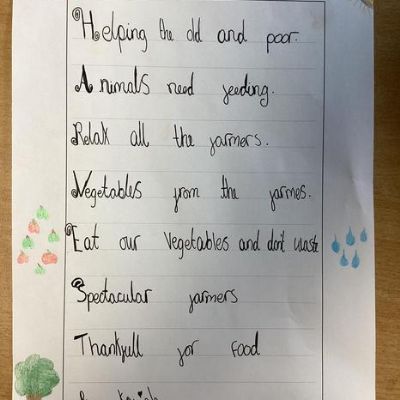 Helping the old and poor.
Animals need feeding.
Relax all the farmers.
Vegetables from the farmes.
Eat our Vegetables and don't waste
Spectacular farmers
Thankfull for food